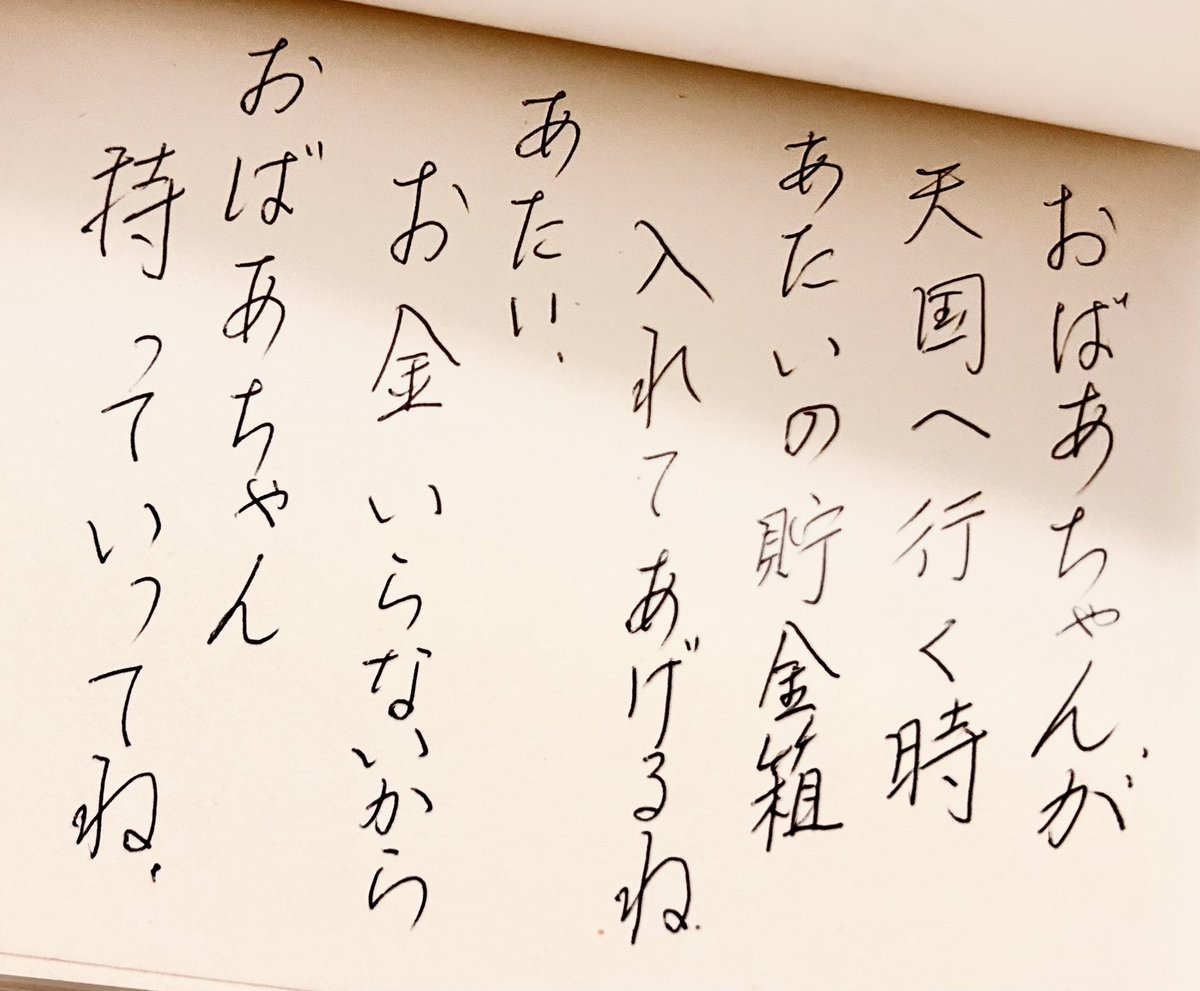 おばあちゃんが
天国へ行く時
あたいの貯金箱
入れてあげるね
あたい、
お金いらないから
おばあちゃん
持っていってね。